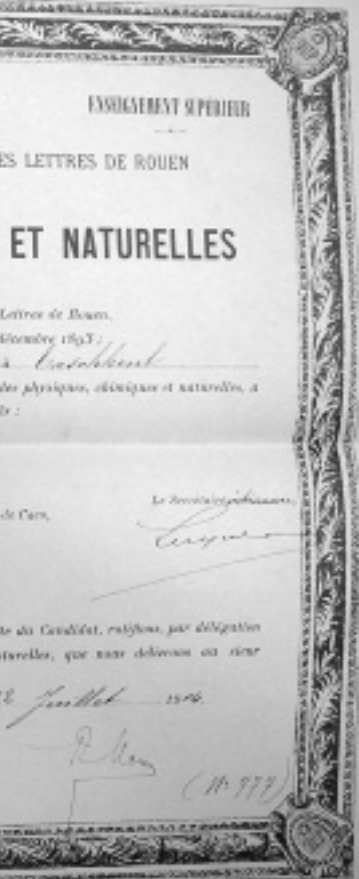 ENSEIGNEMENT SUPÉRIEUR
ES LETTRES DE ROUEN
ET NATURELLES
Lettres de Rouen,
décembre 1893;
à Taschkent
des physiques, chimiques et naturelles, a
ts :
Le Secrétaire
de Caen,
te du Candidat, ratifions, par délégation
aturelles, que nous délivrons au sieur
12 Juillet
(N° 777)